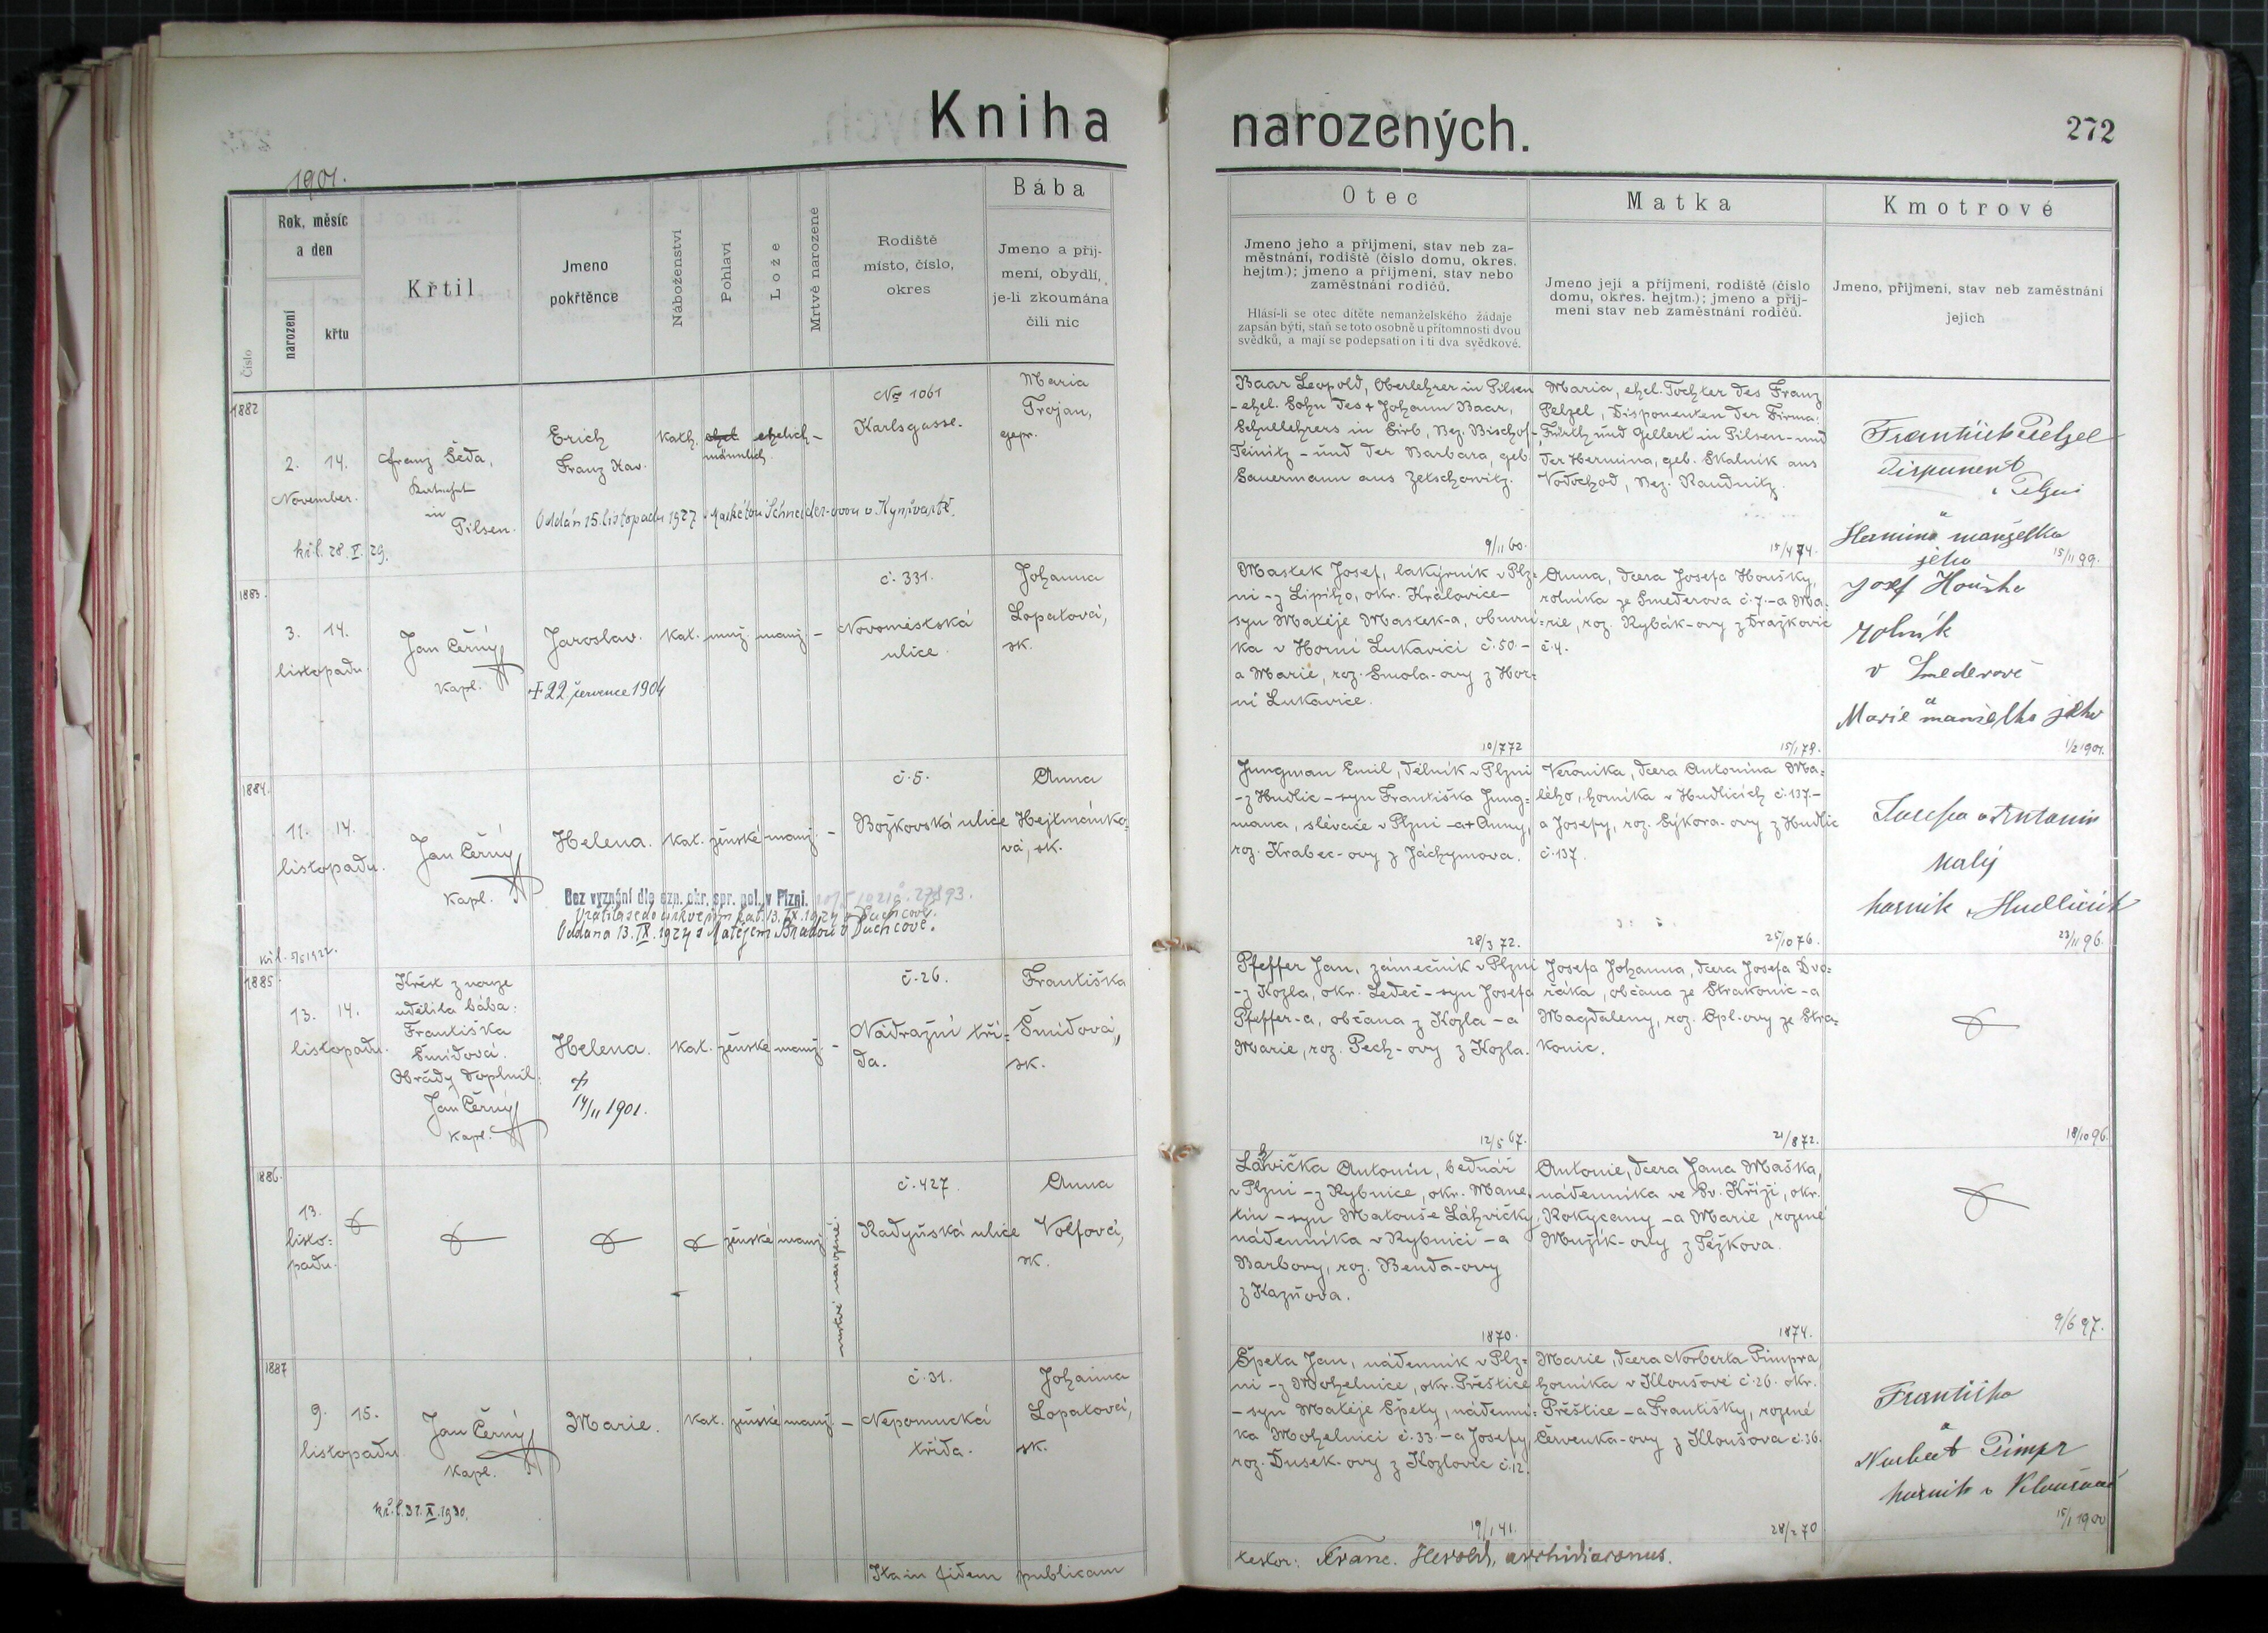 Kniha narozených.
272
1901.
Číslo
Rok, měsíc
a den
narození
křtu
Křtil
Jmeno
pokřtěnce
Náboženství
Pohlaví
Lože
Mrtvě narozené
Rodiště
místo, číslo,
okres
Bába
Jmeno a příj-
mení, obydlí,
je-li zkoumána
čili nic
Otec
Jmeno jeho a přijmení, stav neb za-
městnání, rodiště (číslo domu, okres.
hejtm.); jmeno a příjmení, stav nebo
zaměstnání rodičů.
Hlásí-li se otec dítěte nemanželského žádaje
zapsán býti, staň se toto osobně u přítomnosti dvou
svědků, a mají se podepsati on i ti dva svědkové.
Matka
Jmeno její a příjmení, rodiště (číslo
domu, okres. hejtm.); jmeno a příj-
mení stav neb zaměstnání rodičů.
Kmotrové
Jmeno, příjmení, stav neb zaměstnání
jejich
1882
2. 14.
November.
Franz Šeda,
in
Pilsen.
Erich
Franz Xav.
kath.
männlich
ehelich
–
No 1061
Karlsgasse.
Maria
Trojan,
gepr.
Oddán 15. listopadu 1927 s Markétou Schneider-ovou v Kynžvartě.
křl. 28. V. 29.
Baar Leopold, Oberlehrer in Pilsen
- ehel. Sohn des + Johann Baar,
Schullehrers in Sirb, Bez. Bischof-
Teinitz - und der Barbara, geb.
Sauermann aus Zetschowitz.
9/11 60.
Maria, ehel. Tochter des Franz
Pelzel, Disponenten der Firma:
"Fürth und Gellert" in Pilsen - und
der Hermina, geb. Skalnik aus
Vodochod, Bez. Raudnitz.
15/4 74.
František Pelzel
disponent
v Plzni
a
Hermina manželka
jeho
15/11 99.
1883.
3. 14.
listopadu.
Jan Černý
kapl.
Jaroslav.
kat. muž. manž. –
č. 331.
Novoměstská
ulice.
Johanna
Lopatová,
zk.
+ 22 července 1904
Mastek Josef, lakýrník v Plz-
ni - z Lipího, okr. Kralovice -
syn Matěje Mastek-a, obuvní-
ka v Horní Lukavici č. 50 -
a Marie, roz. Smola-ovy z Hor-
ní Lukavice.
10/7 72
Anna, dcera Josefa Houšky,
rolníka ze Smeďerova č. 7. - a Ma-
rie, roz. Rybák-ovy z Dražkovic
č. 4.
15/1 78.
Josef Houška
rolník
v Smederově
a
Marie manželka jeho
1/2 1901.
1884.
11. 14.
listopadu.
Jan Černý
kapl.
Helena.
kat. ženské manž. –
č. 5.
Božkovská ulice
Anna
Hejtmánko-
vá, zk.
Bez vyznání dle ozn. okr. spr. pol. v Plzni.
Vrátila se do církve řím. kat. 13. IX. 1924 v Duchcově.
Oddána 13. IX. 1924 s Matějem Bradou v Duchcově.
Jungman Emil, dělník v Plzni
- z Hudlic - syn Františka Jung-
mana, slévače v Plzni - a + Anny,
roz. Krabec-ovy z Jáchymova.
28/3 72.
Veronika, dcera Antonína Ma-
lého, horníka v Hudlicích č. 137. -
a Josefy, roz. Sýkora-ovy z Hudlic
č. 137.
25/10 76.
Josefa a Antonin
Malý
horník v Hudlicích
23/11 96.
1885.
13. 14.
listopadu.
Křest z nouze
udělila bába:
Františka
Šmídová.
Obřady doplnil:
Jan Černý
kapl.
Helena.
+
14/11 1901.
kat. ženské manž. –
č. 26.
Nádražní tří-
da.
Františka
Šmídová,
zk.
Pfeffer Jan, zámečník v Plzni
- z Kozla, okr. Ledeč - syn Josefa
Pfeffer-a, občana z Kozla - a
Marie, roz. Pech-ovy z Kozla.
12/5 67.
Josefa Johanna, dcera Josefa Dvo-
řáka, občana ze Strakonic - a
Magdaleny, roz. Opl-ovy ze Stra-
konic.
21/8 72.
18/10 96.
1886.
13.
listo-
padu.
ženské manž.
mrtvě narozené.
č. 427.
Radyňská ulice
Anna
Volfová,
zk.
Láhvička Antonín, bednář
v Plzni - z Rybnice, okr. Mane-
tín - syn Matouše Láhvičky,
nádenníka v Rybnici - a
Barbory, roz. Benda-ovy
z Kazňova.
1870.
Antonie, dcera Jana Maška,
nádenníka ve Sv. Kříži, okr.
Rokycany - a Marie, rozené
Mužík-ovy z Těžkova.
1874.
9/6 97.
1887
9. 15.
listopadu.
Jan Černý
kapl.
Marie.
kat. ženské manž. –
č. 31.
Nepomucká
třída.
Johanna
Lopatová,
zk.
kř. l. 31. X. 1930.
Špeta Jan, nádenník v Plz-
ni - z Mohelnice, okr. Přeštice
- syn Matěje Špety, nádenní-
ka Mohelnici č. 33. - a Josefy,
roz. Dušek-ovy z Kozlovic č. 12.
19/1 41.
Marie, dcera Norberta Pimpra,
horníka v Kloušově č. 26. okr.
Přeštice - a Františky, rozené
Červenka-ovy z Kloušova č. 36.
28/2 70
Františka
a
Norbert Pimpr
horník v Kloušově
15/1 1900
Ita in fidem publicam
testor: Franc. Herold, archidiaconus.